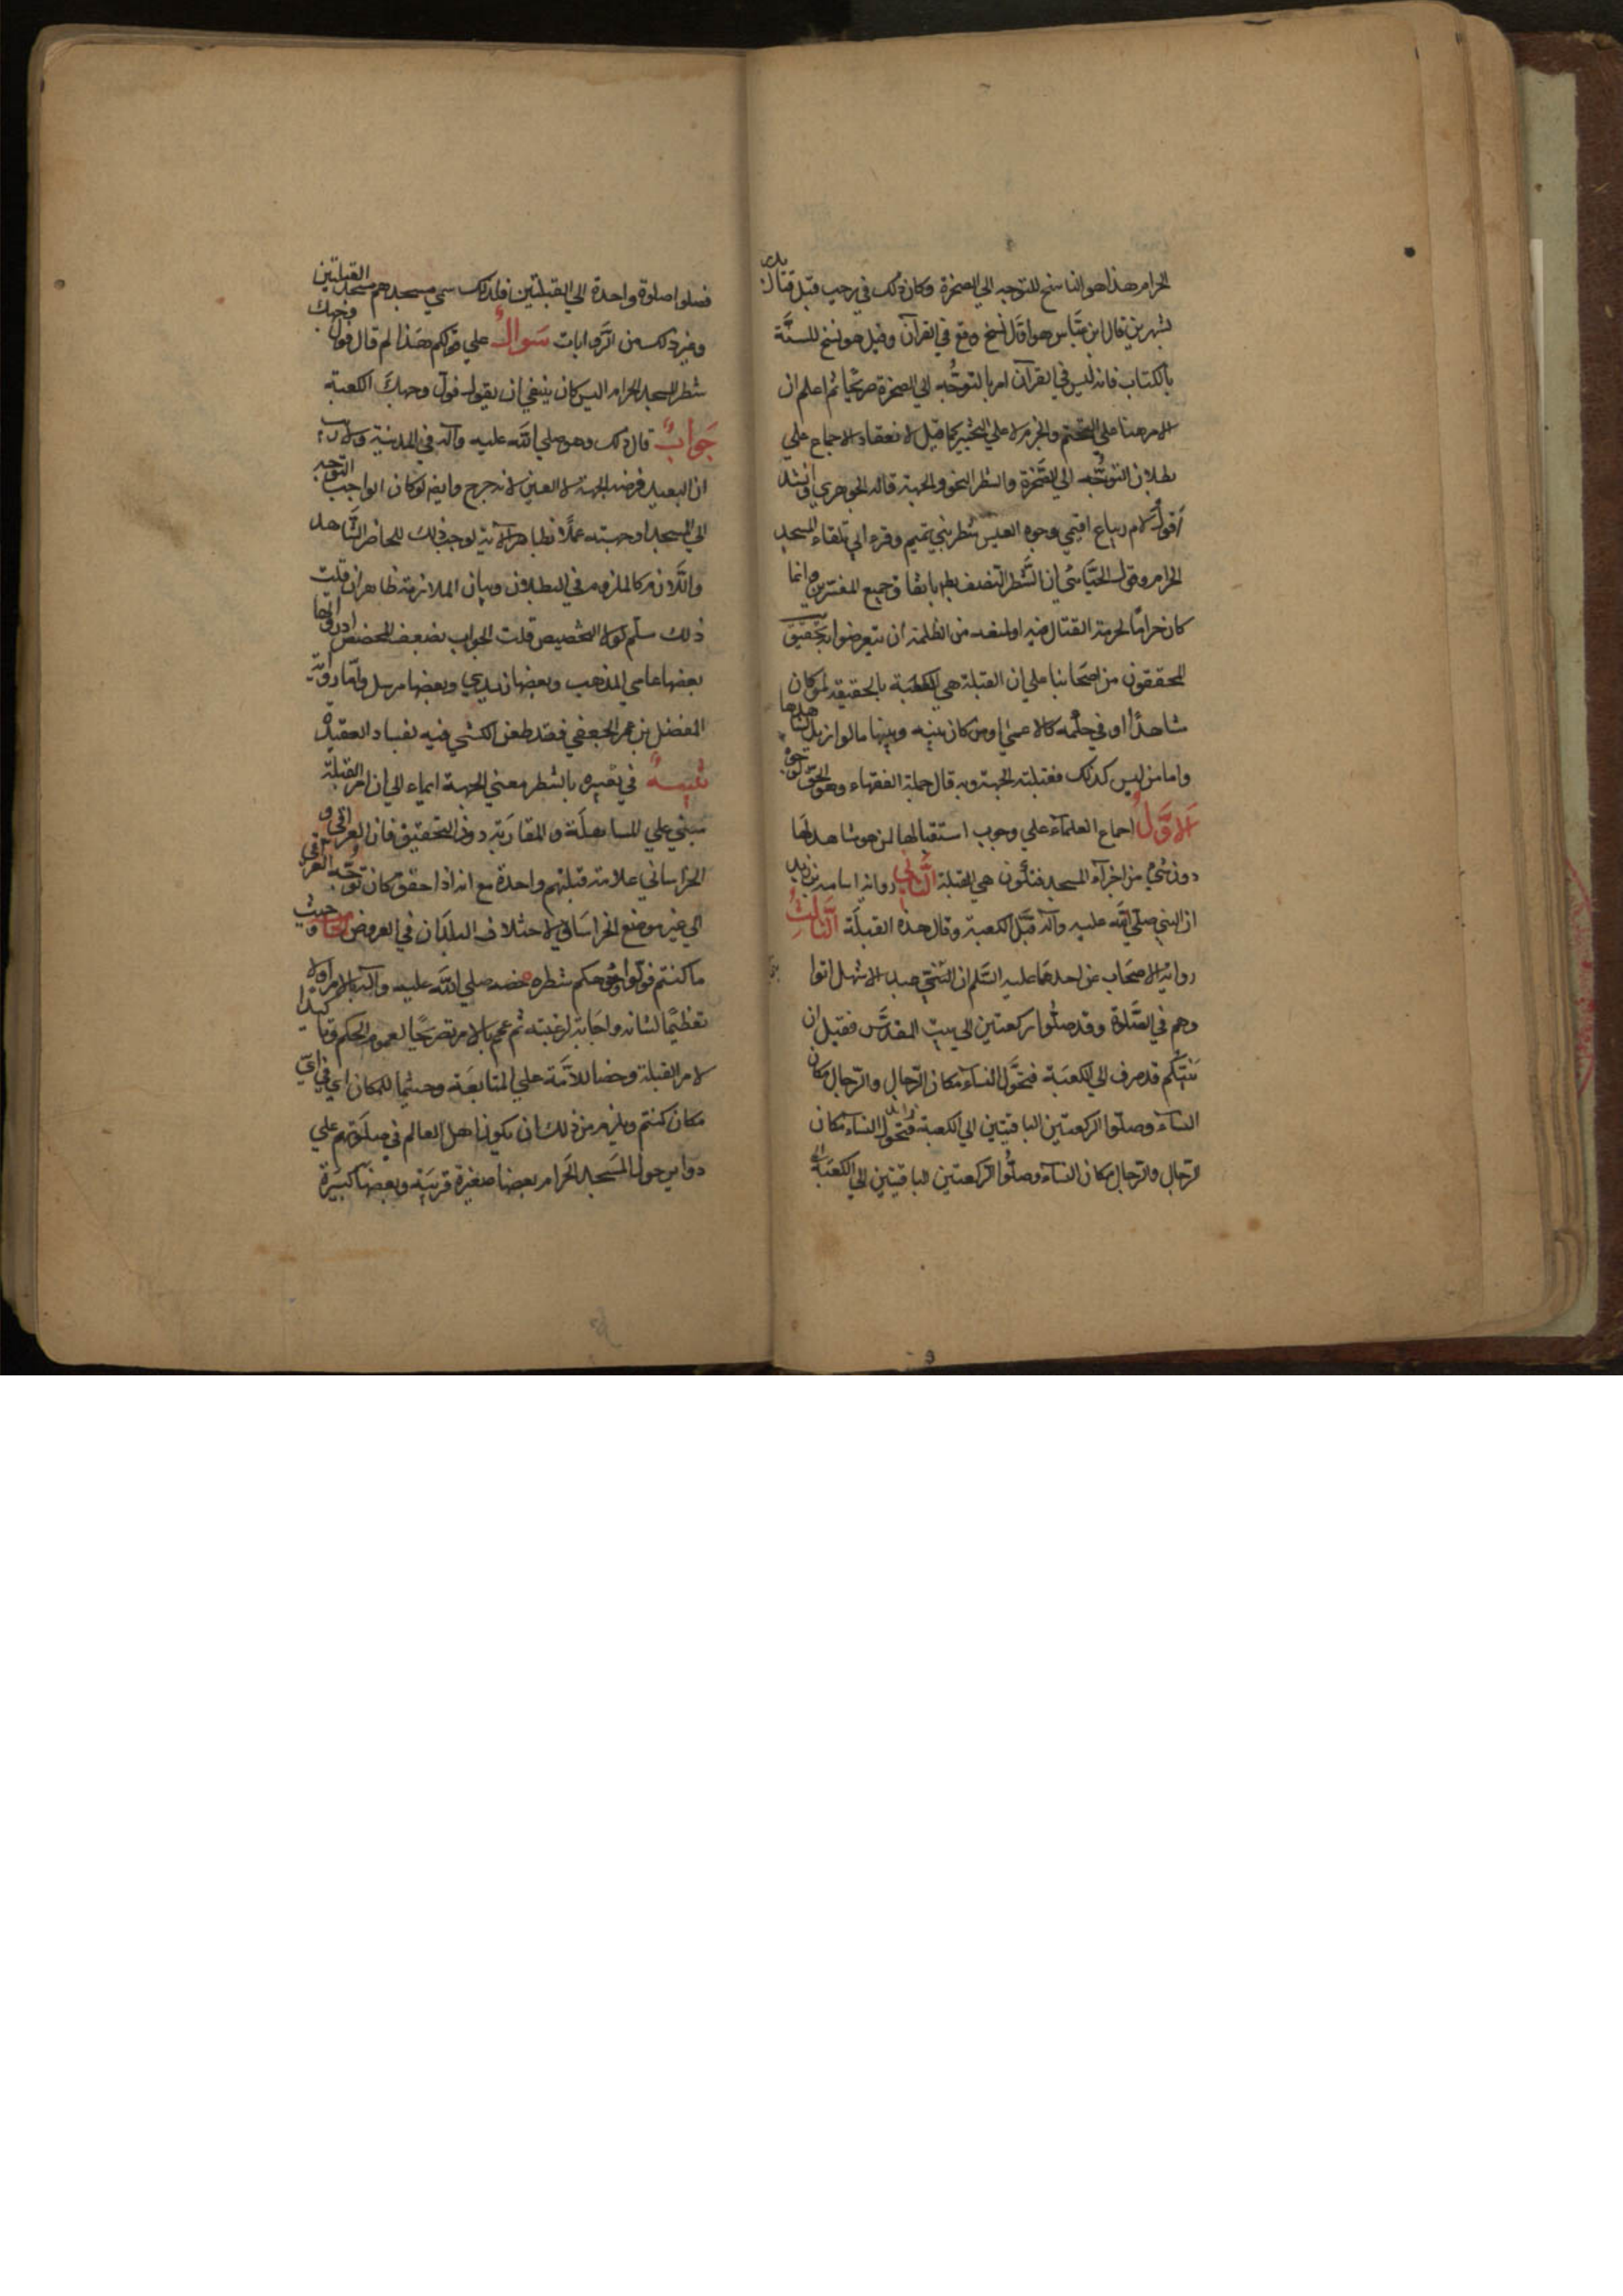 الحرام هذا هو الناسخ للتوجه الي الصخرة وكان ذلك في رجب قبل قتال بدر
بشهرين قال ابن عباس هو اوّل نسخ وقع في القرآن وقيل هو نسخ للسنّة
بالكتاب فانه ليس في القرآن امر بالتوجُّه الي الصخرة صريحًا ثم اعلم ان
الامر هنا علي التحتم والجزم لا علي التخيير كما قيل لانعقاد الاجماع علي
بطلان التوجُّه الي الصَّخرة والشطر النحو والجهة قاله الجوهري وانشد
اقول لام زنباع اقيمي وجوه العيس شطر بني تميم وقرء ابي تلقاء المسجد
الحرام وقول الجبّائي ان الشَّطر النصف بط باتفاق جميع المفسرين وانما
كان حرامًا لحرمة القتال فيه او لمنعه من الظلمة أن يتعرضوا به تحقيق
المحققون من اصحابنا علي ان القبلة هي الكعبة بالحقيقة لمن كان
مشاهدًا او في حكمه كالاعمي او من كان بينه وبينها ما لو ازيل لشاهدها
واما من ليس كذلك فقبلته الجهة وبه قال جملة الفقهاء وهو الحق لوجوه
الاوّل اجماع العلماء علي وجوب استقبالها لمن هو مشاهد لها
دون شيء من اجزاء المسجد فتكون هي القبلة الثاني رواية اسامه بن زيد
ان النبي صلّي الله عليه وآله قبَّل الكعبة وقال هذه القبلَة الثالث
رواية الاصحاب عن احدهما عليه السّلم ان بني عبد الاشهل اتوا
وهم في الصَّلاة وقد صلّوا ركعتين الي بيت المقدَّس فقيل ان
نبيّكم قد صرف الي الكعبَة فتحوَّل النساء مكان الرّجال والرّجال مكان
النساء وصلّوا الركعتين الباقيتين الي الكعبة فتحول النساء مكان
الرّجال والرّجال مكان النساء وصلّوا الركعتين الباقيتين الي الكعبَة
فصلوا صلوة واحدة الي القبلتين فلذلك سمي مسجدهم مسجد القبلتين
وغير ذلك من الروايات سَوالٌ علي قولكم هَذا لم قال فول وجهك
شطر المسجد الحرام اليس كان ينبغي ان يقول فول وجهكَ الكعبة
جَوابٌ قال ذلك وهو صلي الله عليه وآله في المدينة ولا ريب
ان البعيد فرضه الجهة لا العين لانه حرج وايضه لو كان الواجب التوجه
الي المسجد او جهته عملًا بظاهر الآية لوجب ذلك للحاضر المشَاهد
واللّازم كالملزوم في البطلان وبيان الملازمة ظاهر ان قلت
ذلك سلّم لولا التخصيص قلت الجواب بضعف المخصص
بعضها عامي المذهب وبعضها زيدي وبعضها مرسل وامّا رواية
المفضل بن عمر الجعفي فقد طعن الكشي فيه لفساد العقيدة
تنبيهٌ في تعبيره بالشطر بمعني الجهة ايماء الي ان امر القبلة
مبني علي المساهلَة والمقارَبة دون التحقيق فان العراقي و
الخراساني علامة قبلتهم واحدة مع انه اذا حقق كان توجّه العراقي
الي غير موضع الخراسَاني لاختلاف البلدَان في العروض وحيث
ما كنتم فولّوا وجوهكم شطره خصه صلي الله عليه وآله بالامر اولا
تعظيمًا لشانه واجَابة لرغبته ثم عمم بالامر تصريحًا لعموم الحكم وتاكيدا
لامر القبلة وحضا للاُمّة علي المتابعَة وحيثما للمكان اي في ايّ
مكان كنتم ويلزم من ذلك ان يكون اهل العالم في صلوتهم علي
دواير حول المسَجد الحَرام بعضها صغيرة قريَبة وبعضهَا كبيرَة